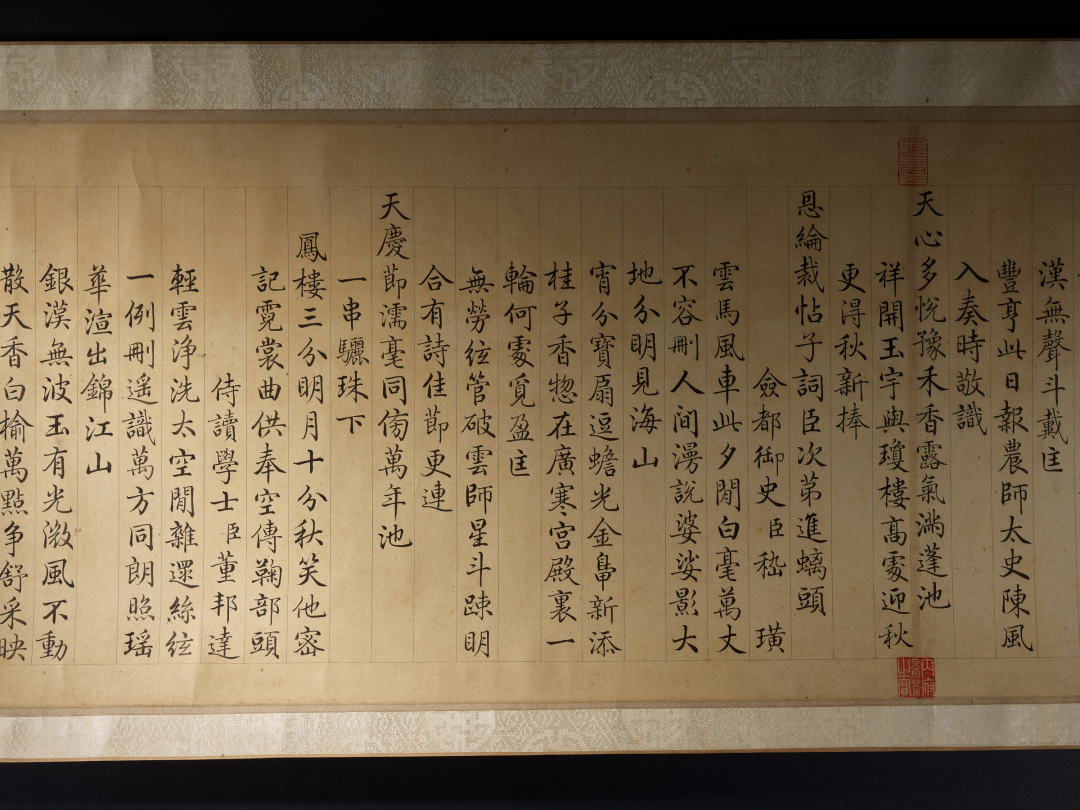 漢無聲斗戴匡
豐亨此日報農師太史陳風
入奏時敬識
天心多悅豫禾香露氣滿蓬池
祥開玉宇與瓊樓髙䖏迎秋
更得秋新捧
恩綸裁帖子詞臣次苐進螭頭
僉都御史臣嵇璜
雲馬風車此夕閒白毫萬丈
不容刪人间漫説婆娑影大
地分明見海山
宵分寶扇逗蟾光金鳧新添
桂子香惣在廣寒宫殿裏一
輪何䖏覓盈匡
無勞絃管破雲師星斗踈明
合有詩佳莭更連
天慶莭濡毫同傍萬年池
一串驪珠下
鳳樓三分明月十分秋笑他宻
記霓裳曲供奉空傳鞠部頭
侍讀學士臣董邦達
輕雲浄洗太空閒雜遝絲絃
一例刪遥識萬方同朗照瑶
華渲出錦江山
銀漢無波玉有光微風不動
散天香白榆萬點争舒采映